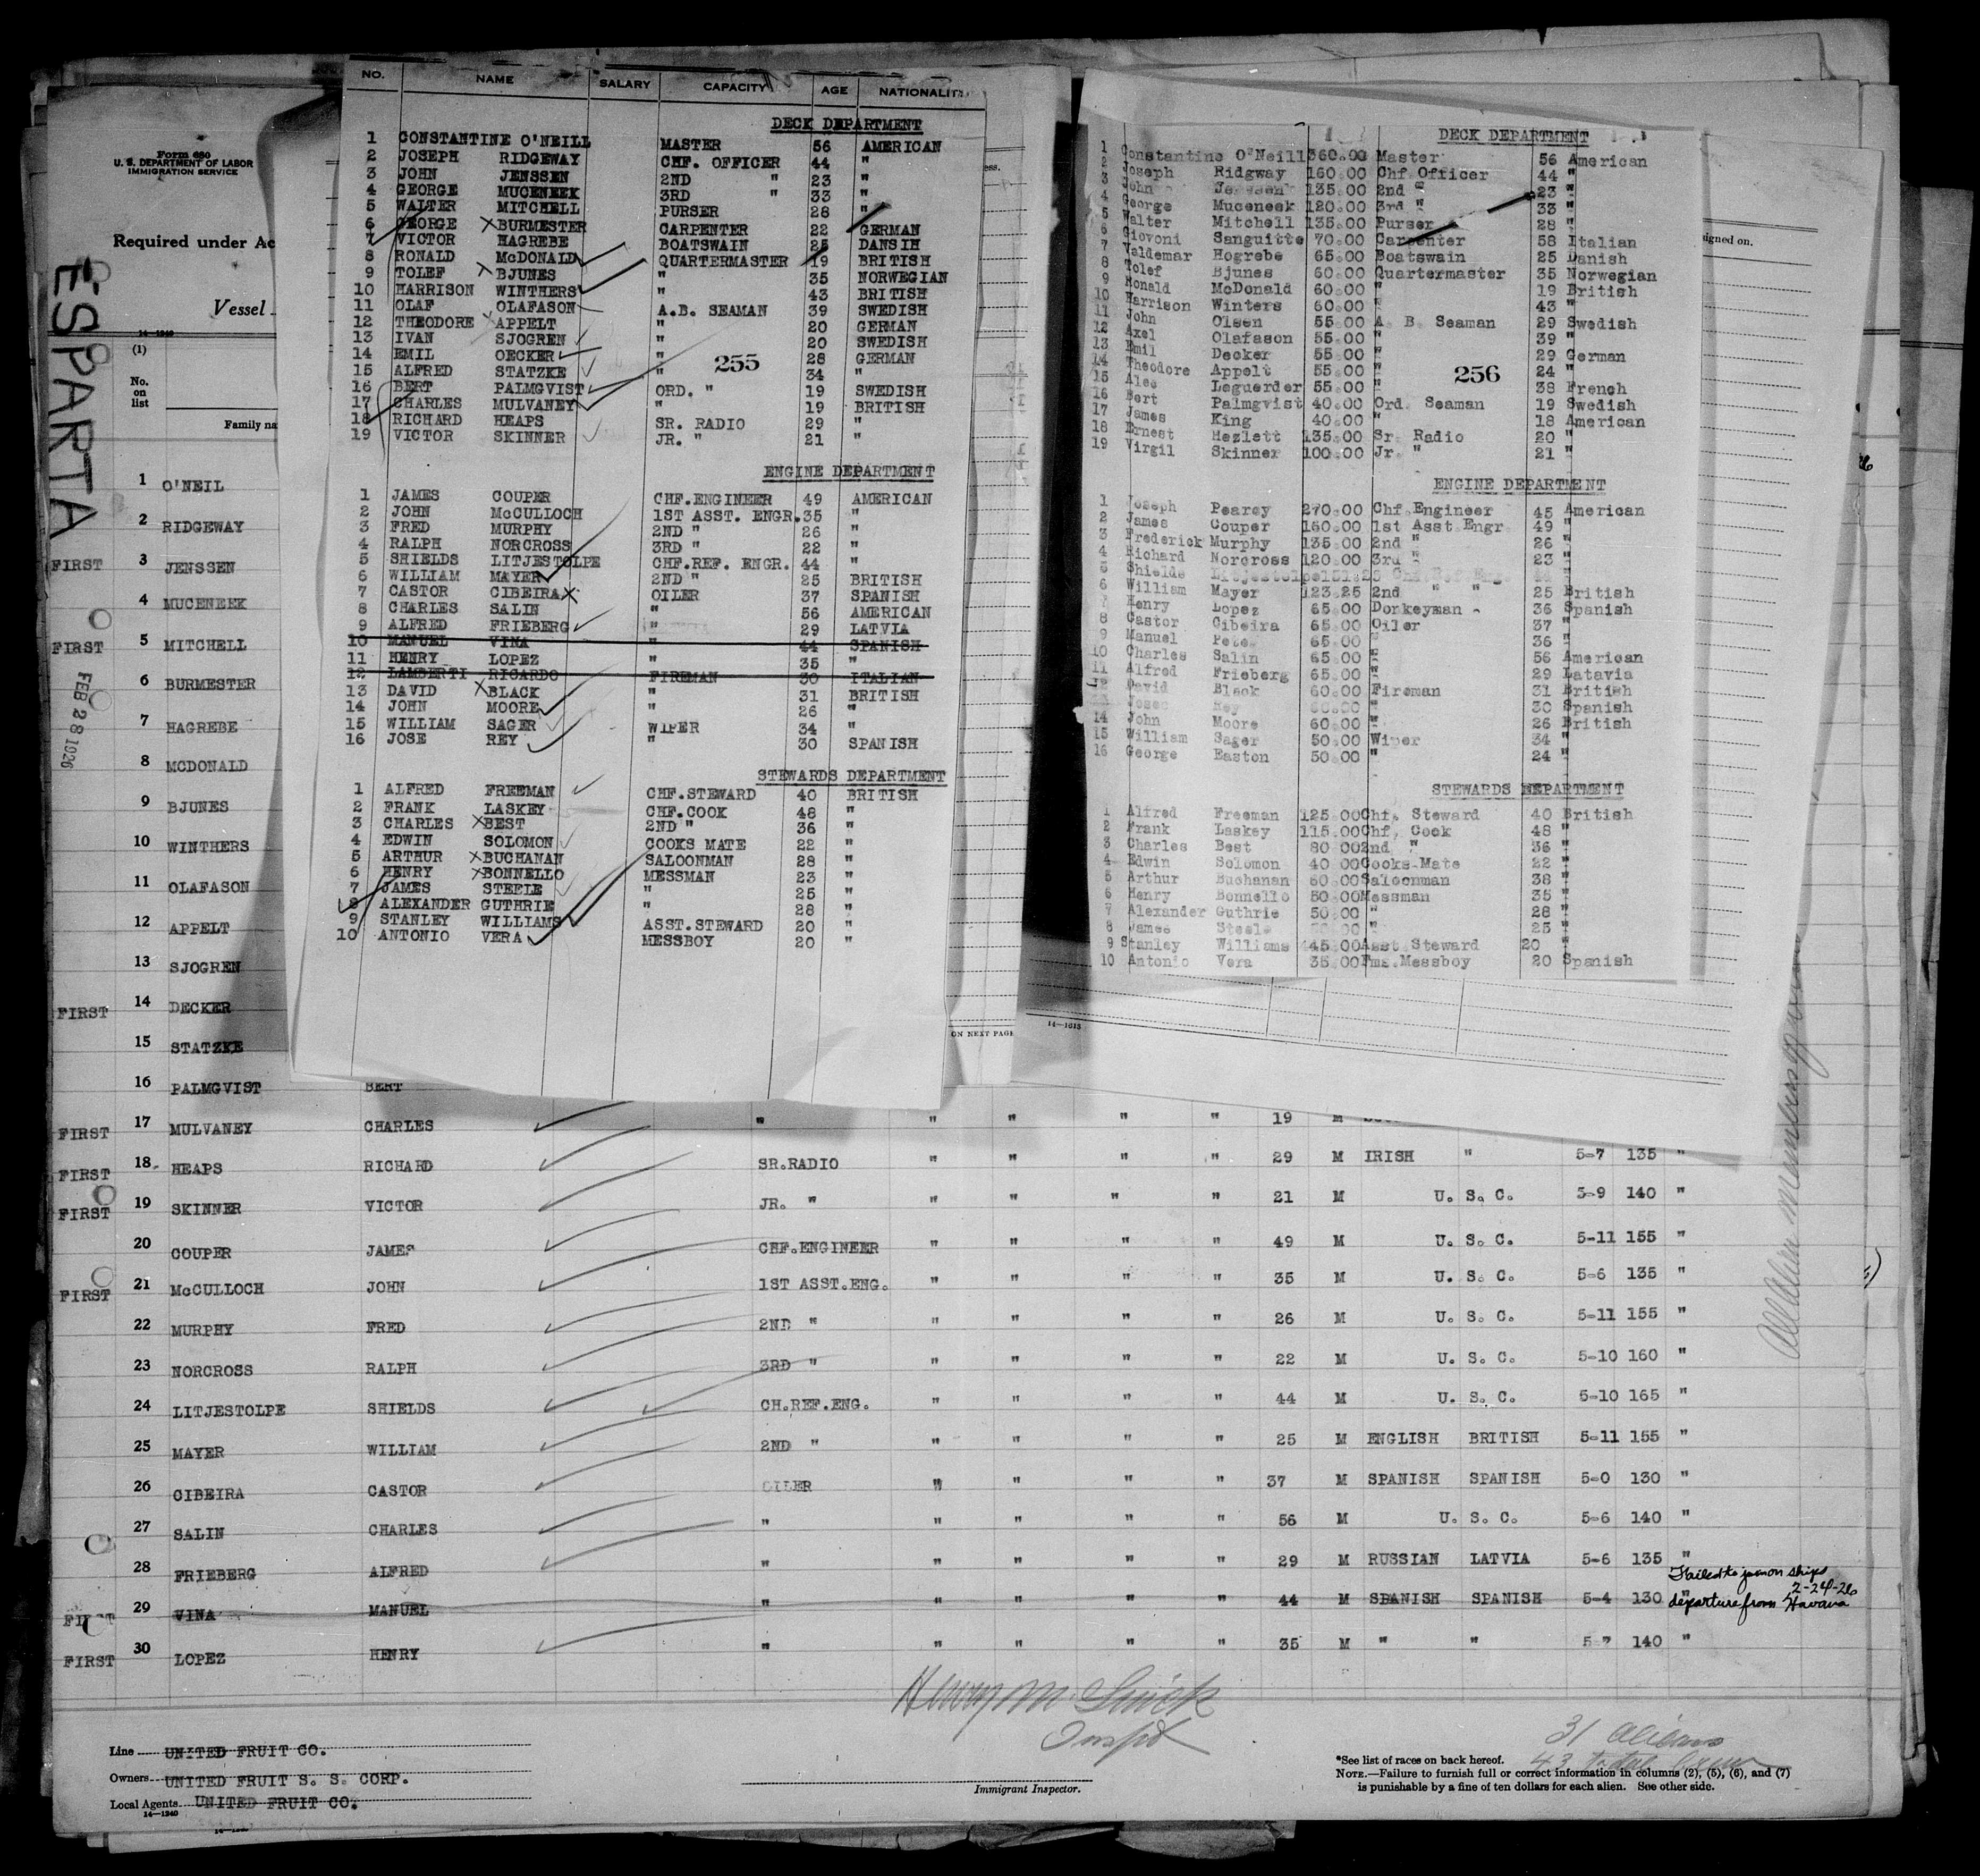 Form 680
U. S. DEPARTMENT OF LABOR
IMMIGRATION SERVICE
Required under Ac
Vessel
14—1240
(1)
No. on list
Family na
ESPARTA
FEB 28 1926
NO. NAME SALARY CAPACITY AGE NATIONALITY
DECK DEPARTMENT
1 CONSTANTINE O'NEILL MASTER 56 AMERICAN
2 JOSEPH RIDGEWAY CHF. OFFICER 44 "
3 JOHN JENSSEN 2ND " 23 "
4 GEORGE MUCENEEK 3RD " 33 "
5 WALTER MITCHELL PURSER 28 "
6 GEORGE X BURMESTER CARPENTER 22 GERMAN
7 VICTOR HAGREBE BOATSWAIN 25 DANSIH
8 RONALD McDONALD QUARTERMASTER 19 BRITISH
9 TOLEF X BJUNES " 35 NORWEGIAN
10 HARRISON WINTHERS " 43 BRITISH
11 OLAF OLAFASON A.B. SEAMAN 39 SWEDISH
12 THEODORE X APPELT " 20 GERMAN
13 IVAN SJOGREN " 20 SWEDISH
14 EMIL OECKER " 28 GERMAN
15 ALFRED STATZKE " 34 "
16 BERT PALMGVIST ORD. " 19 SWEDISH
17 CHARLES MULVANEY " 19 BRITISH
18 RICHARD HEAPS SR. RADIO 29 "
19 VICTOR SKINNER JR. " 21 "
255
ENGINE DEPARTMENT
1 JAMES COUPER CHF.ENGINEER 49 AMERICAN
2 JOHN McCULLOCH 1ST ASST. ENGR. 35 "
3 FRED MURPHY 2ND " 26 "
4 RALPH NORCROSS 3RD " 22 "
5 SHIELDS LITJESTOLPE CHF.REF. ENGR. 44 "
6 WILLIAM MAYER 2ND " 25 BRITISH
7 CASTOR CIBEIRA X OILER 37 SPANISH
8 CHARLES SALIN " 56 AMERICAN
9 ALFRED FRIEBERG 29 LATVIA
10 MANUEL VINA " 44 SPANISH
11 HENRY LOPEZ " 35 "
12 LAMBERTI RICARDO FIREMAN 30 ITALIAN
13 DAVID X BLACK " 31 BRITISH
14 JOHN MOORE " 26 "
15 WILLIAM SAGER WIPER 34 "
16 JOSE REY " 30 SPANISH
STEWARDS DEPARTMENT
1 ALFRED FREEMAN CHF.STEWARD 40 BRITISH
2 FRANK LASKEY CHF.COOK 48 "
3 CHARLES X BEST 2ND " 36 "
4 EDWIN SOLOMON COOKS MATE 22 "
5 ARTHUR X BUCHANAN SALOONMAN 28 "
6 HENRY X BONNELLO MESSMAN 23 "
7 JAMES STEELE " 25 "
8 ALEXANDER GUTHRIE " 28 "
9 STANLEY WILLIAMS ASST.STEWARD 20 "
10 ANTONIO VERA MESSBOY 20 "
ON NEXT PAGE
DECK DEPARTMENT
1 Constantine O'Neill 360.00 Master 56 American
2 Joseph Ridgway 160.00 Chf Officer 44 "
3 John Jenssen 135.00 2nd " 23 "
4 George Muceneek 120.00 3rd " 33 "
5 Walter Mitchell 135.00 Purser 28 "
6 Giovoni Sanguitte 70.00 Carpenter 58 Italian
7 Valdemar Hogrebe 65.00 Boatswain 25 Danish
8 Tolef Bjunes 60.00 Quartermaster 35 Norwegian
9 Ronald McDonald 60.00 " 19 British
10 Harrison Winters 60.00 " 43 "
11 John Olsen 55.00 A. B. Seaman 29 Swedish
12 Axel Olafason 55.00 " 39 "
13 Emil Decker 55.00 " 29 German
14 Theodore Appelt 55.00 " 24 "
15 Alec Leguerder 55.00 " 38 French
16 Bert Palmgvist 40.00 Ord. Seaman 19 Swedish
17 James King 40.00 " 18 American
18 Ernest Hezlett 135.00 Sr. Radio 20 "
19 Virgil Skinner 100.00 Jr. " 21 "
256
ENGINE DEPARTMENT
1 Joseph Pearcy 270.00 Chf Engineer 45 American
2 James Couper 160.00 1st Asst Engr 49 "
3 Frederick Murphy 135.00 2nd " 26 "
4 Richard Norcross 120.00 3rd " 23 "
5 Shields Litjestolpe 151.25 Chf Ref Eng. 44 "
6 William Mayer 123.25 2nd " " 25 British
7 Henry Lopez 65.00 Donkeyman 36 Spanish
8 Castor Cibeira 65.00 Oiler 37 "
9 Manuel Pete 65.00 " 36 "
10 Charles Salin 65.00 " 56 American
11 Alfred Frieberg 65.00 " 29 Latavia
12 David Black 60.00 Fireman 31 British
Rey " 30 Spanish
14 John Moore 60.00 " 26 British
15 William Sager 50.00 Wiper 34 "
16 George Easton 50.00 " 24 "
STEWARDS DEPARTMENT
1 Alfred Freeman 125.00 Chf. Steward 40 British
2 Frank Laskey 115.00 Chf, Cook 48 "
3 Charles Best 80 00 2nd " 36 "
4 Edwin Solomon 40 00 Cooks Mate 22 "
5 Arthur Buchanan 60 00 Saloonman 38 "
6 Henry Bonnello 50 00 Messman 35 "
7 Alexander Guthrie 50.00 " 28 "
8 James Steele " 25 "
9 Stanley Williams 45.00 Asst. Steward 20 "
10 Antonio Vera 35.00 Fms.Messboy 20 Spanish
14—1613
signed on.
1 O'NEIL
2 RIDGEWAY
FIRST 3 JENSSEN
4 MUCENEEK
FIRST 5 MITCHELL
6 BURMESTER
7 HAGREBE
8 MCDONALD
9 BJUNES
10 WINTHERS
11 OLAFASON
12 APPELT
13 SJOGREN
FIRST 14 DECKER
15 STATZKE
16 PALMGVIST BERT
FIRST 17 MULVANEY CHARLES " " " " " 19 M
FIRST 18 HEAPS RICHARD SR.RADIO " " " " 29 M IRISH " 5-7 135 "
FIRST 19 SKINNER VICTOR JR. " " " " " 21 M U. S. C. 5-9 140 "
20 COUPER JAMES CHF.ENGINEER " " " " 49 M U. S. C. 5-11 155 "
FIRST 21 McCULLOCH JOHN 1ST ASST.ENG. " " " " 35 M U. S. C. 5-6 135 "
22 MURPHY FRED 2ND " " " " " 26 M U. S. C. 5-11 155 "
23 NORCROSS RALPH 3RD " " " " " 22 M U. S. C. 5-10 160 "
24 LITJESTOLPE SHIELDS CH.REF.ENG. " " " " 44 M U. S. C. 5-10 165 "
25 MAYER WILLIAM 2ND " " " " " 25 M ENGLISH BRITISH 5-11 155 "
26 CIBEIRA CASTOR OILER " " " " 37 M SPANISH SPANISH 5-0 130 "
27 SALIN CHARLES " " " " " 56 M U. S. C. 5-6 140 "
28 FRIEBERG ALFRED " " " " " 29 M RUSSIAN LATVIA 5-6 135 "
FIRST 29 VINA MANUEL " " " " " 44 M SPANISH SPANISH 5-4 130 "
Failed to join on ships
2-24-26
departure from Havana
FIRST 30 LOPEZ HENRY " " " " " 35 M " " 5-7 140 "
Henry M.
Inspt
Immigrant Inspector.
Line UNITED FRUIT CO.
Owners UNITED FRUIT S. S. CORP.
Local Agents UNITED FRUIT CO.
14—1240
31 aliens
43 total crew
*See list of races on back hereof.
NOTE.—Failure to furnish full or correct information in columns (2), (5), (6), and (7)
is punishable by a fine of ten dollars for each alien. See other side.